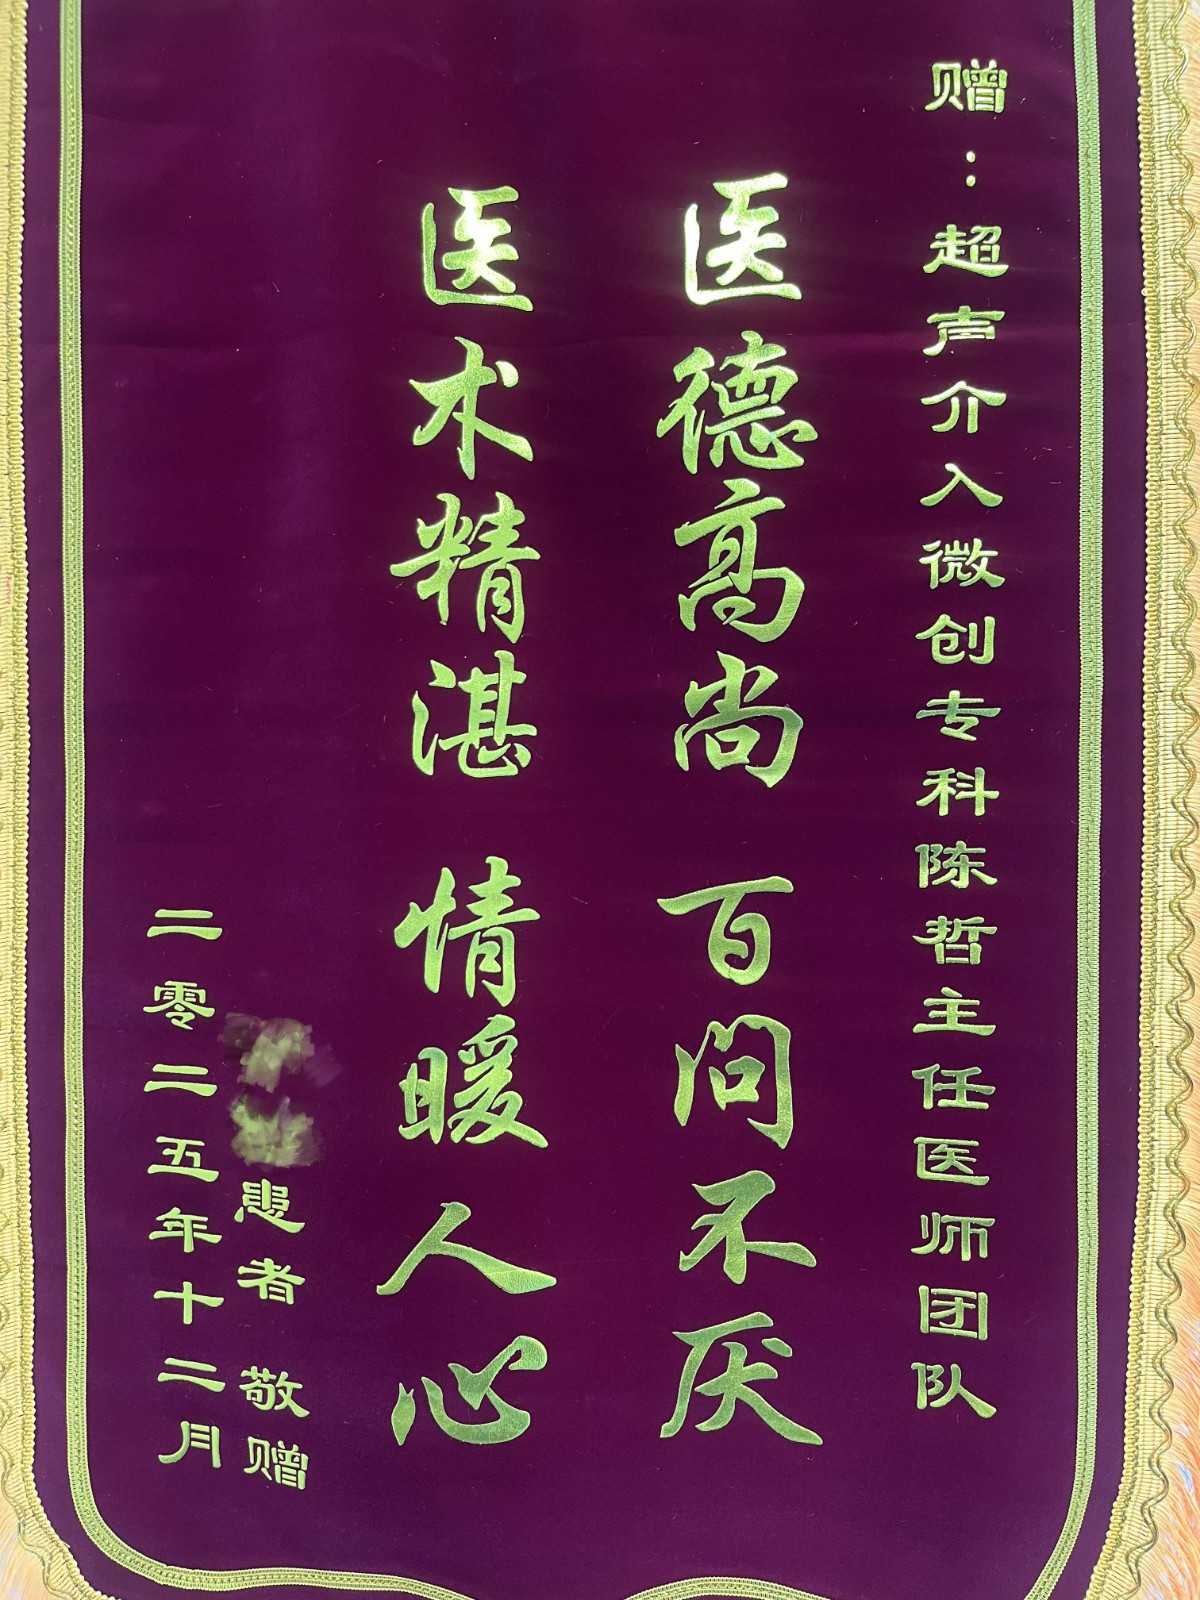 赠：超声介入微创专科陈哲主任医师团队
医德高尚 百问不厌
医术精湛 情暖人心
患者 敬赠
二零二五年十二月